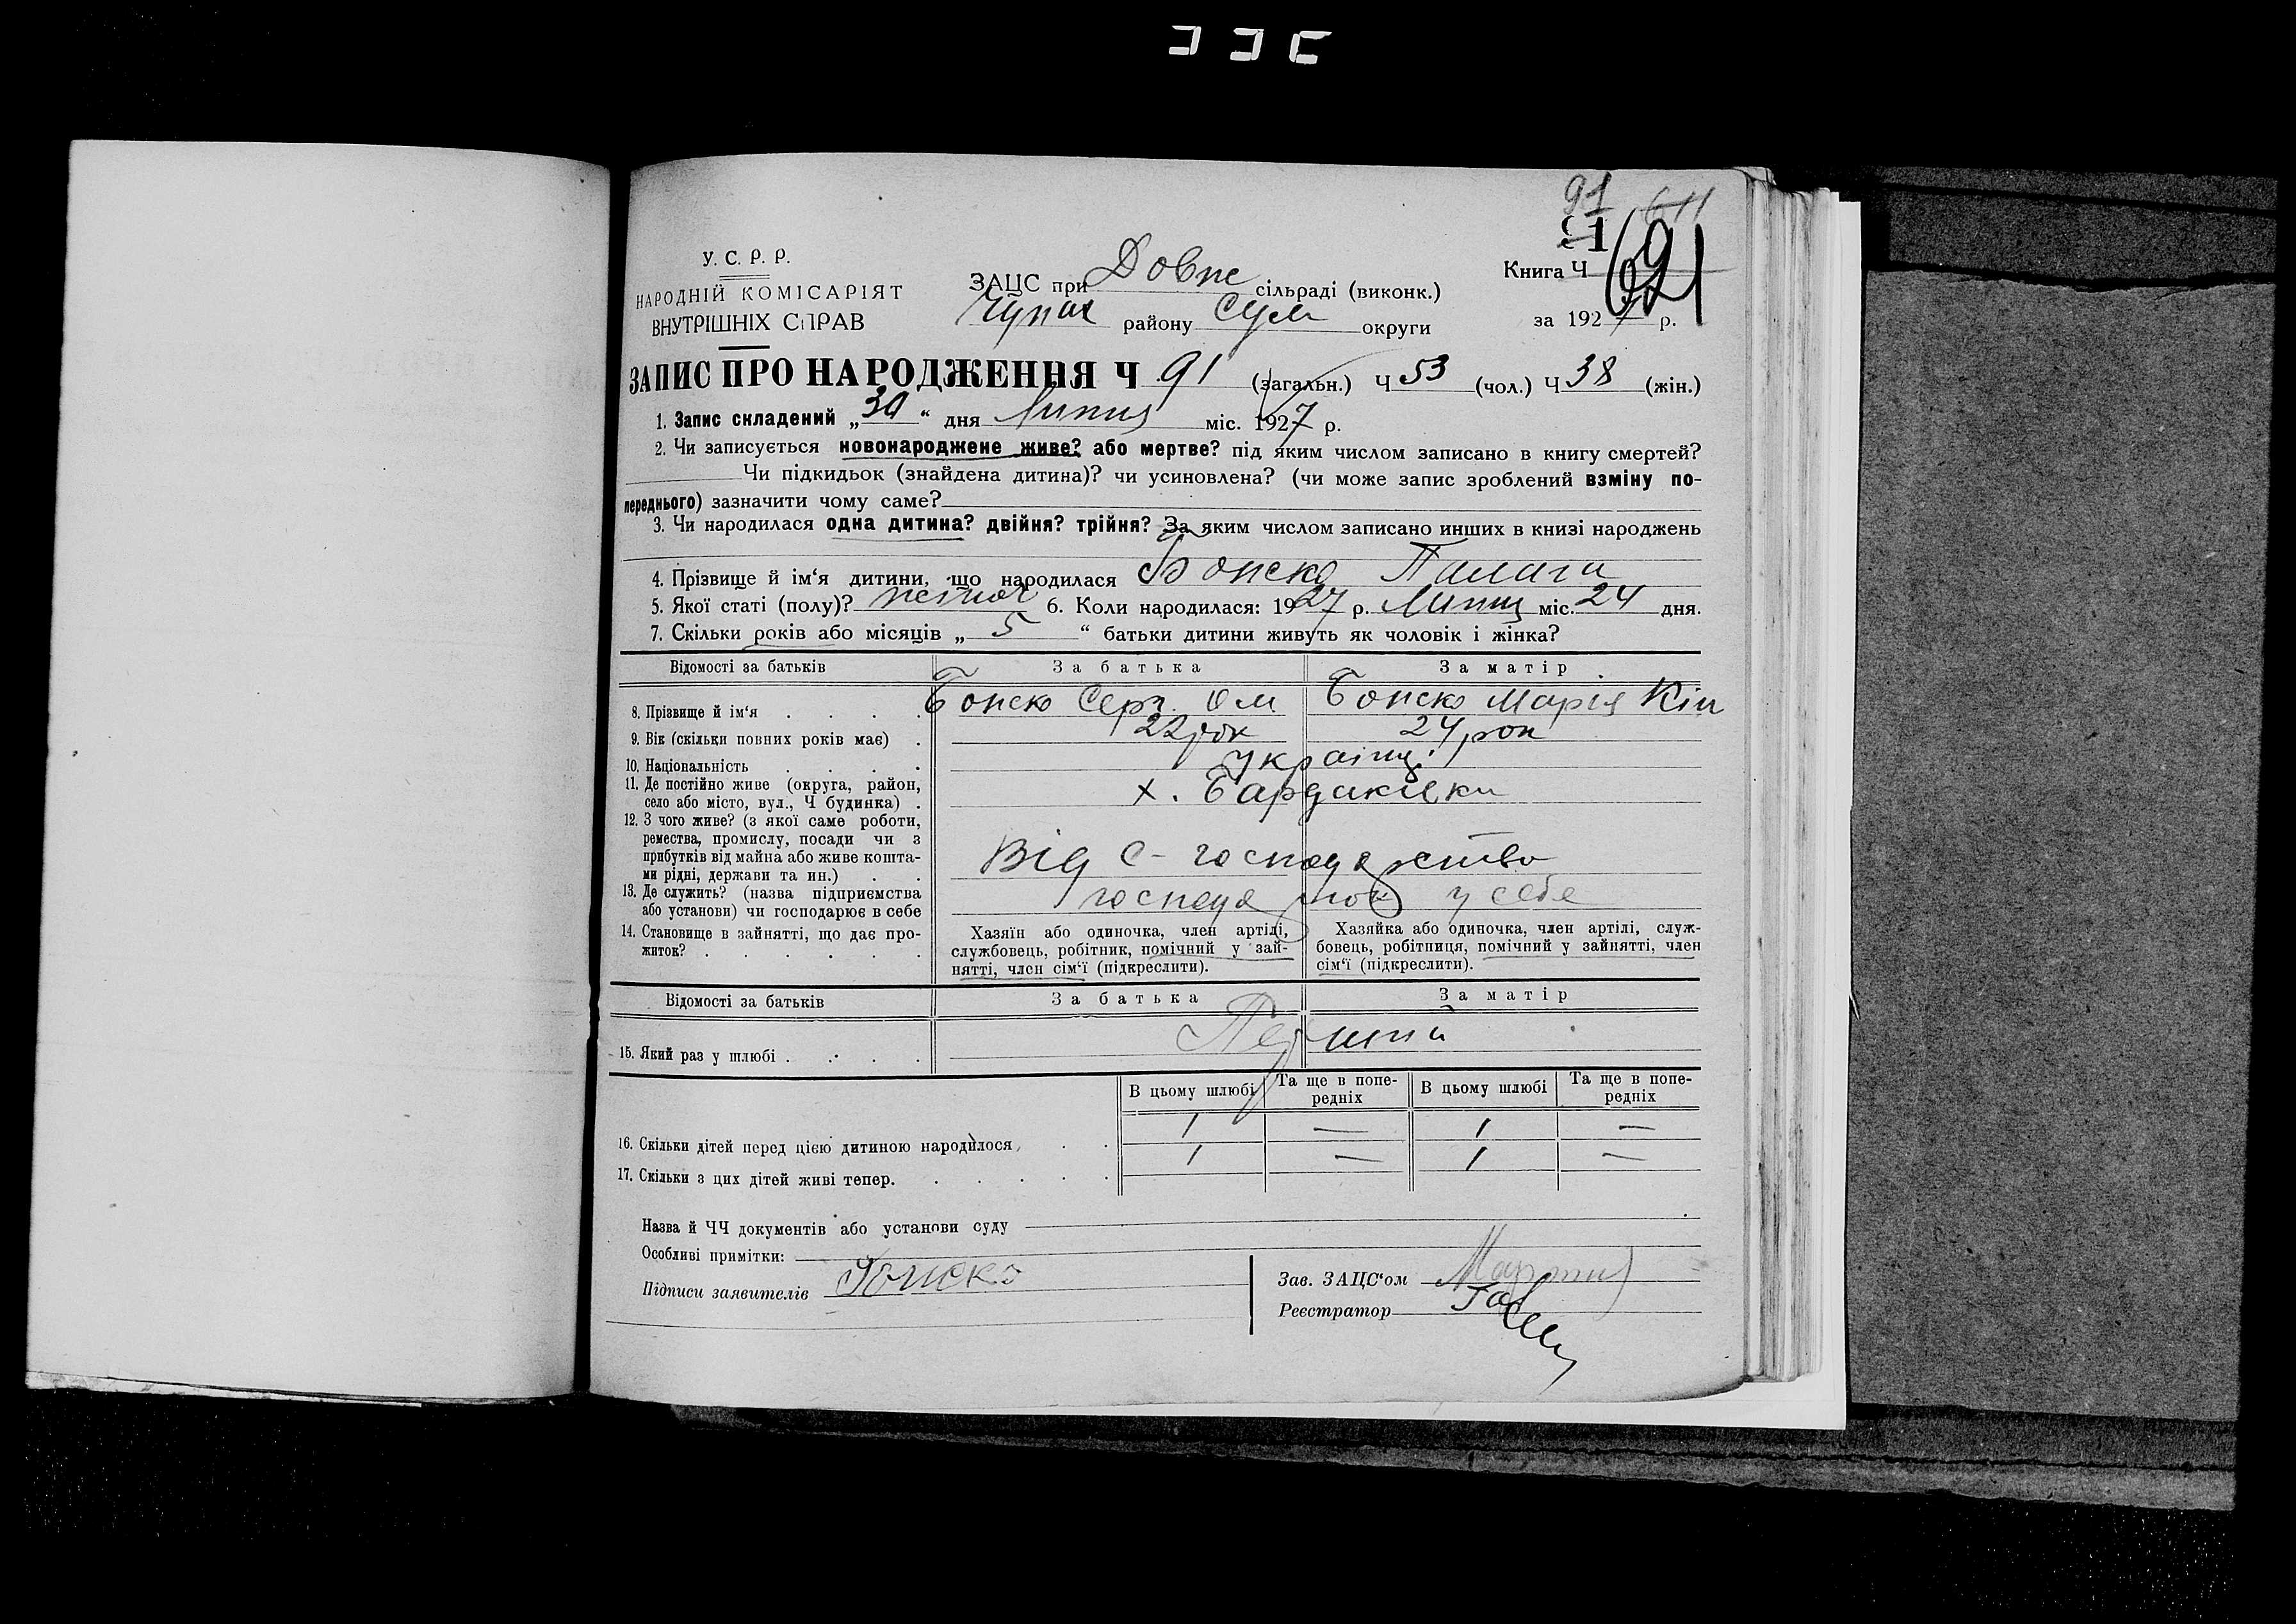 91
91
У. С. Р. Р.
НАРОДНІЙ КОМІСАРІЯТ
ВНУТРІШНІХ СПРАВ
ЗАЦС при Довж сільраді (виконк.)
Чупах району Сум округи
Книга Ч 691
за 1927 р.
ЗАПИС ПРО НАРОДЖЕННЯ Ч 91 (загальн.) Ч 53 (чол.) Ч 38 (жін.)
1. Запис складений „30“ дня Липня міс. 1927 р.
2. Чи записується новонароджене живе? або мертве? під яким числом записано в книгу смертей?
Чи підкидьок (знайдена дитина)? чи усиновлена? (чи може запис зроблений взміну по-
переднього) зазначити чому саме?
3. Чи народилася одна дитина? двійня? трійня? За яким числом записано инших в книзі народжень
4. Прізвище й ім‘я дитини, що народилася Бонско Палага
5. Якої статі (полу)? жіноч 6. Коли народилася: 1927 р. Липц міс. 24 дня.
7. Скільки років або місяців „ 5 “ батьки дитини живуть як чоловік і жінка?
Відомості за батьків За батька За матір
8. Прізвище й ім‘я . . . . Бонско Серг. Ом Бонско Марія Кін
9. Вік (скільки повних років має) . 22 рок 24 рок
10. Національність . . . . українці
11. Де постійно живе (округа, район,
село або місто, вул., Ч будинка) . х. Бардаківки
12. З чого живе? (з якої саме роботи,
ремества, промислу, посади чи з
прибутків від майна або живе кошта-
ми рідні, держави та ин.) . . Від с-господарство
13. Де служить? (назва підприємства
або установи) чи господарює в себе у себе
14. Становище в зайнятті, що дає про-
житок? . . . . . .
Хазяїн або одиночка, член артілі,
службовець, робітник, помічний у зай-
нятті, член сім‘ї (підкреслити).
Хазяйка або одиночка, член артілі, служ-
бовець, робітниця, помічний у зайнятті, член
сім‘ї (підкреслити).
Відомості за батьків За батька За матір
15. Який раз у шлюбі . . . . Перший
В цьому шлюбі Та ще в попе-
редніх В цьому шлюбі Та ще в попе-
редніх
16. Скільки дітей перед цією дитиною народилося . . 1 — 1 —
17. Скільки з цих дітей живі тепер. . . . . . 1 — 1 —
Назва й ЧЧ документів або установи суду
Особливі примітки:
Підписи заявителів Бонско
Зав. ЗАЦС‘ом
Реєстратор